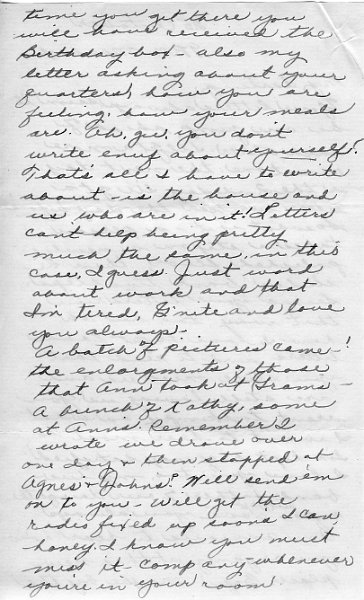 time you get there you
will have received the
Birthday box - also my
letter asking about your
quarters, how you are
feeling, how your meals
are. Oh, gee, you don't
write enuf about yourself!
That's all I have to write
about - is the house and
us who are in it! Letters
can't help being pretty
much the same, in this
case, I guess. Just word
about work and that
I'm tired, G'nite and love
you always -
A batch of pictures came !
the enlargments of those
that Ann took at Grams -
A bunch of Kathy, some
at Anns. Remember I
wrote we drove over
one day & then stopped at
Agnes & Johns? Will send 'em
on to you - Will get the
radio fixed up soon's I can
honey. I know you must
miss it - company whenever
you're in your room.